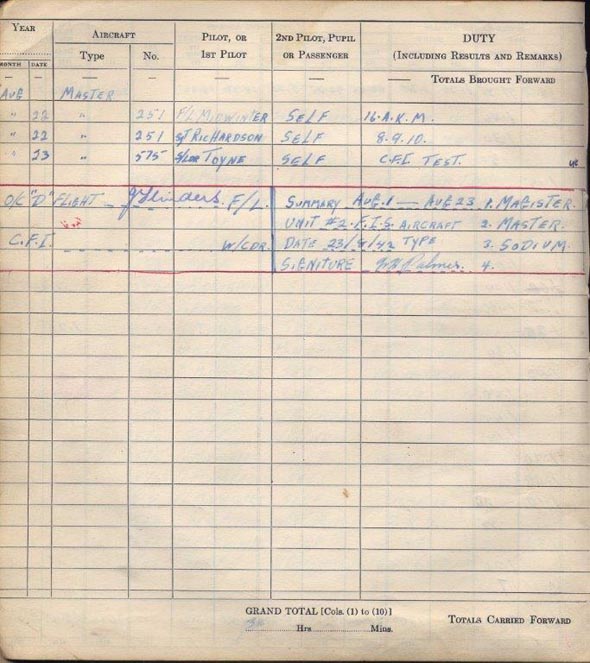 YEAR AIRCRAFT PILOT, OR 1ST PILOT 2ND PILOT, PUPIL OR PASSENGER DUTY (INCLUDING RESULTS AND REMARKS)
MONTH DATE Type No.
— — — — — — — TOTALS BROUGHT FORWARD
AUG MASTER
" 22 " 251 F/L MIDWINTER SELF 16.A.K.M.
" 22 " 251 SGT RICHARDSON SELF 8.9.10.
" 23 " 575 S/LDR TOYNE SELF C.F.I. TEST.
O/C "D" FLIGHT F/L. SUMMARY AUG.1 — AUG 23 1. MAGISTER.
UNIT #2.F.I.S. AIRCRAFT 2. MASTER.
C.F.I. W/CDR. DATE 23/8/42 TYPE 3. SODIUM.
SIGNITURE Palmer. 4.
GRAND TOTAL [Cols. (1) to (10)]
Hrs. Mins. TOTALS CARRIED FORWARD